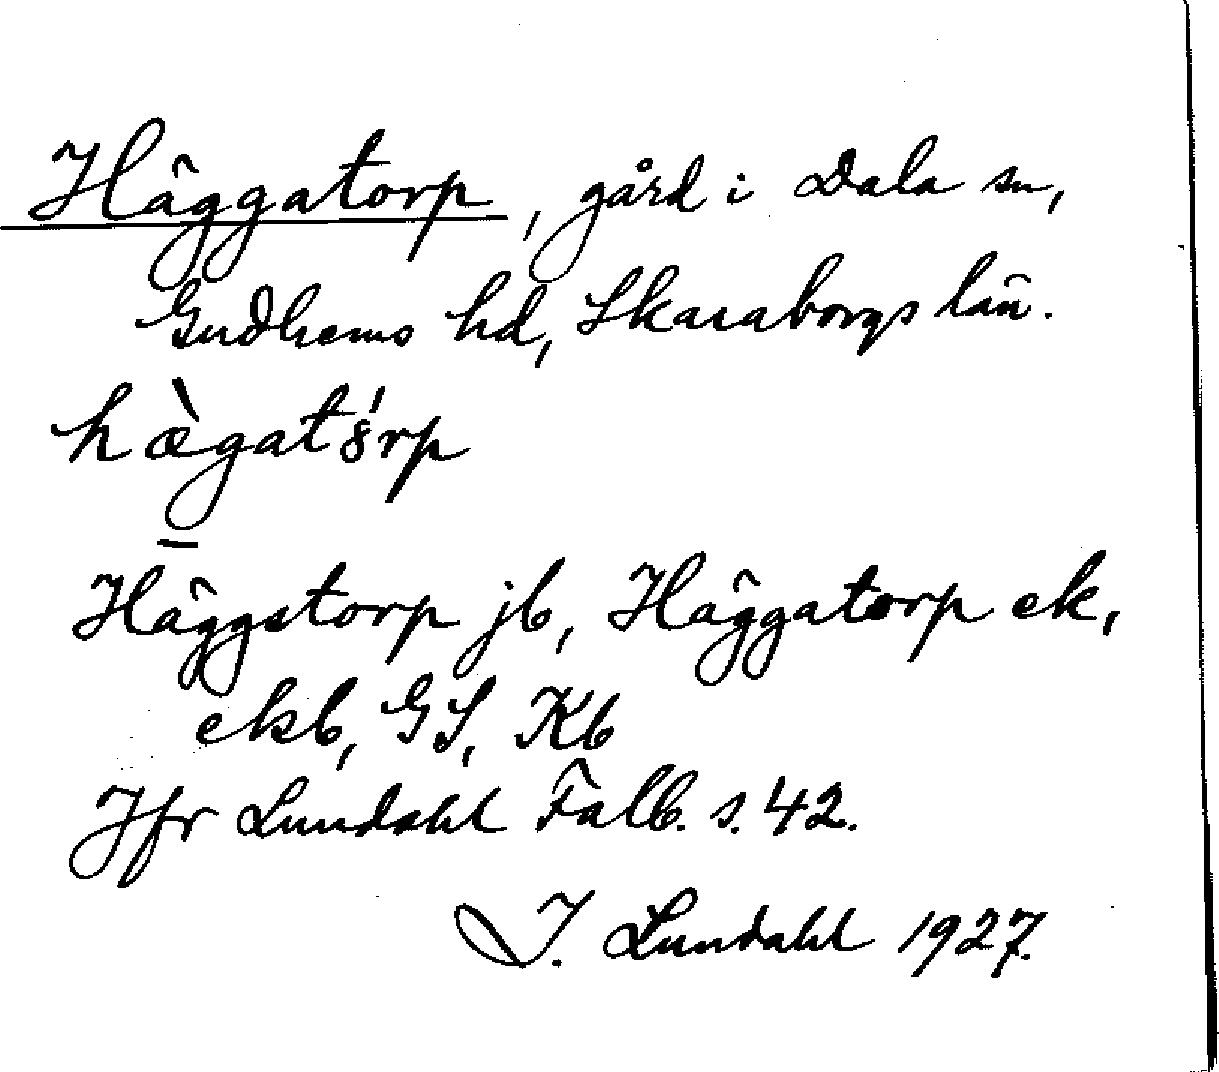 Häggatorp, gård i Dala sn,
Gudhems hd, Skaraborgs län.
hæ̀gatȣ́rp
Häggetorp jb, Häggatorp ek,
ekb, GS, Kb
Jfr Lundahl Falb. s. 42.
I. Lundahl 1927.